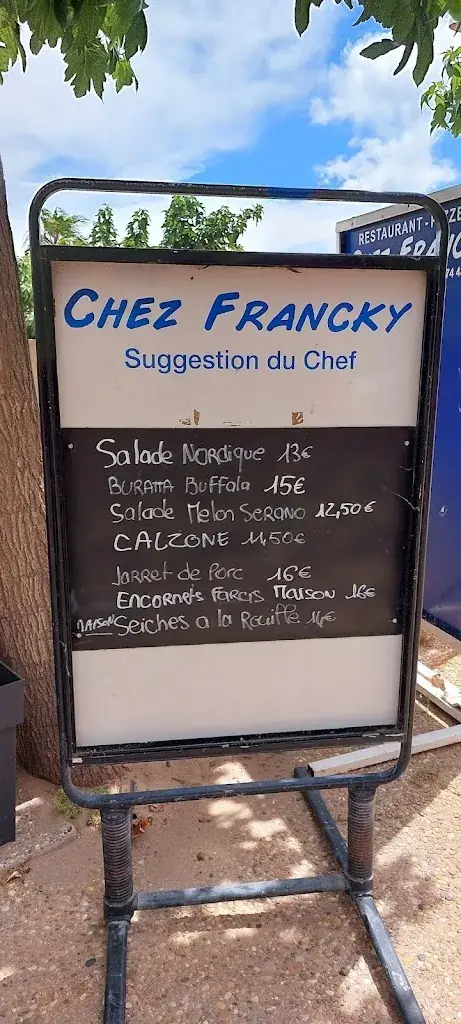 RESTAURANT-PIZZE
CHEZ FRANC
CHEZ FRANCKY
Suggestion du Chef
Salade NORdique 13€
BURATTA Buffala 15€
Salade Melon SERANO 12,50€
CALZONE 11,50€
Jarret de Porc 16€
ENCORNETS FARCIS MAISON 16€
MAISON Seiches a la Rouille 16€